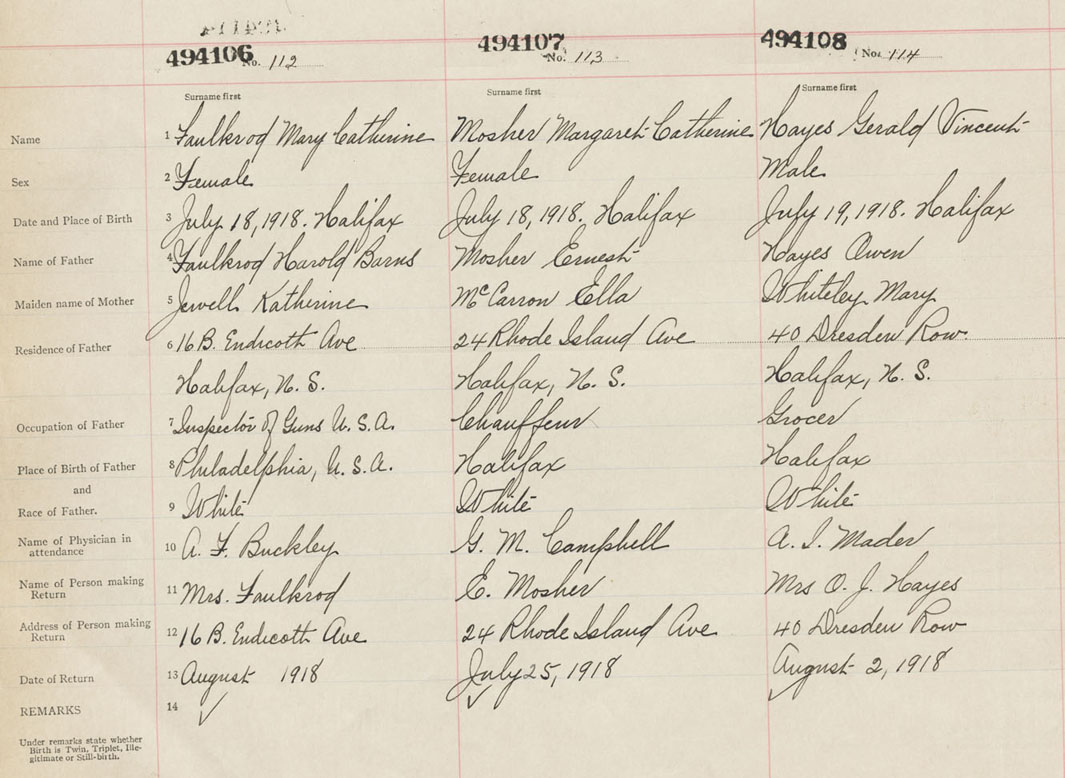 494106 No. 112 494107 No. 113 494108 No. 114
Surname first Surname first Surname first
Name 1 Faulkrod Mary Catherine Mosher Margaret Catherine Hayes Gerald Vincent
Sex 2 Female Female Male
Date and Place of Birth 3 July 18, 1918. Halifax July 18, 1918. Halifax July 19, 1918. Halifax
Name of Father 4 Faulkrod Harold Barns Mosher Ernest Hayes Owen
Maiden name of Mother 5 Jewell Katherine McCarron Ella Whiteley Mary
Residence of Father 6 16 B. Endicoth Ave 24 Rhode Island Ave 40 Dresden Row.
Halifax, N. S. Halifax, N. S. Halifax, N. S.
Occupation of Father 7 Inspector of Guns U.S.A. Chauffeur Grocer
Place of Birth of Father 8 Philadelphia, U.S.A. Halifax Halifax
and
Race of Father. 9 White White White
Name of Physician in
attendance 10 A. F. Buckley G. M. Campbell A. I. Mader
Name of Person making
Return 11 Mrs. Faulkrod E. Mosher Mrs O. J. Hayes
Address of Person making
Return 12 16 B. Endicoth Ave 24 Rhode Island Ave 40 Dresden Row
Date of Return 13 August 1918 July 25, 1918 August 2, 1918
REMARKS 14
Under remarks state whether
Birth is Twin, Triplet, Ille-
gitimate or Still-birth.